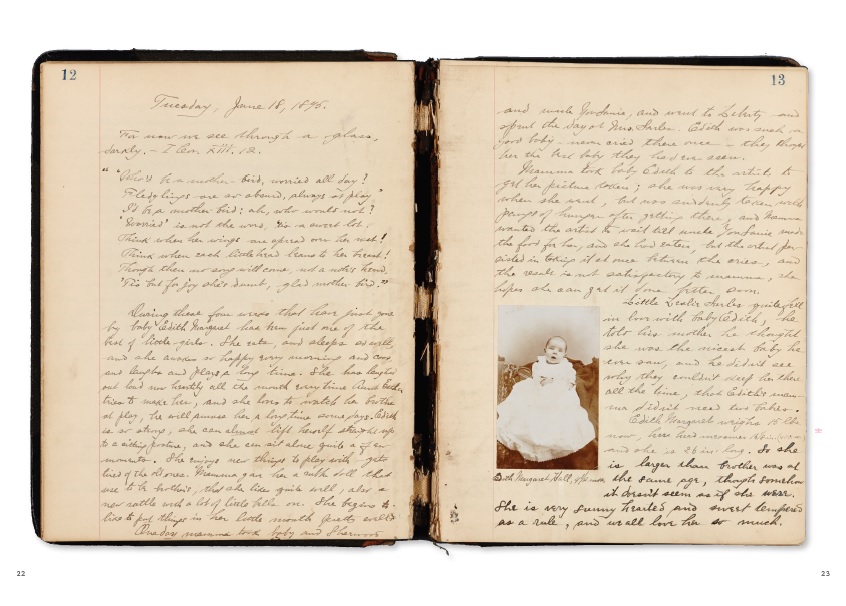 12
Tuesday, June 18, 1895.
For now we see through a glass,
darkly. - I Cor. XIII. 12.
"Who'd be a mother-bird, worried all day?
Fledglings are so absurd, always at play."
I'd be a mother bird; ah, who would not?
'Worried' is not the word, 'tis a sweet lot.
Think when her wings are spread over her nest!
Think when each little head leans to her breast!
Though then no song will come, not a note's heard,
'Tis but for joy she's dumb, glad mother bird."
During these four weeks that have just gone
by baby Edith Margaret has been just one of the
best of little girls. She eats, and sleeps so well,
and she awakes so happy every morning and coos
and laughs and plays a long time. She has laughed
out loud now heartily all the month every time Aunt
tries to make her, and she loves to watch her brother
at play, he will amuse her a long time some days. Edith
is so strong, she can almost lift herself straight up
to a sitting posture, and she can sit alone quite a few
moments. She enjoys new things to play with - gets
tired of the old ones. Mamma gave her a rubber doll that
use to be brother's, that she likes quite well, also a
new rattle with a lot of little bells on. She begins to
like to put things in her little mouth pretty well
One day mamma took baby and Sherwood
13
and uncle Jon Louie, and went to Liberty and
spent the day at Mrs. Searles. Edith was such a
good baby - never cried there once - they thought
her the best baby they had ever seen.
Mamma took baby Edith to the artist's to
get her picture taken; she was very happy
when she went, but was suddenly taken with
pangs of hunger after getting there, and Mamma
wanted the artist to wait till uncle Jon Louie made
the food for her, and she had eaten, but the artist per-
sisted in taking it at once between the cries, and
the result is not satisfactory to mamma, she
hopes she can get it done better soon.
Little Leslie Searles quite fell
in love with baby Edith, he
told his mother he thought
she was the nicest baby he
ever saw, and he didn't see
why they couldn't keep her there
all the time, that Edith's mam-
ma didn't need two babies.
Edith Margaret weighs 15 lbs.
now,
and she is 26 in. long. So she
is larger than brother was at
the same age, though somehow
it doesn't seem as if she were.
She is very sunny hearted and sweet tempered
as a rule, and we all love her so much.
Edith Margaret Hall,
22
23